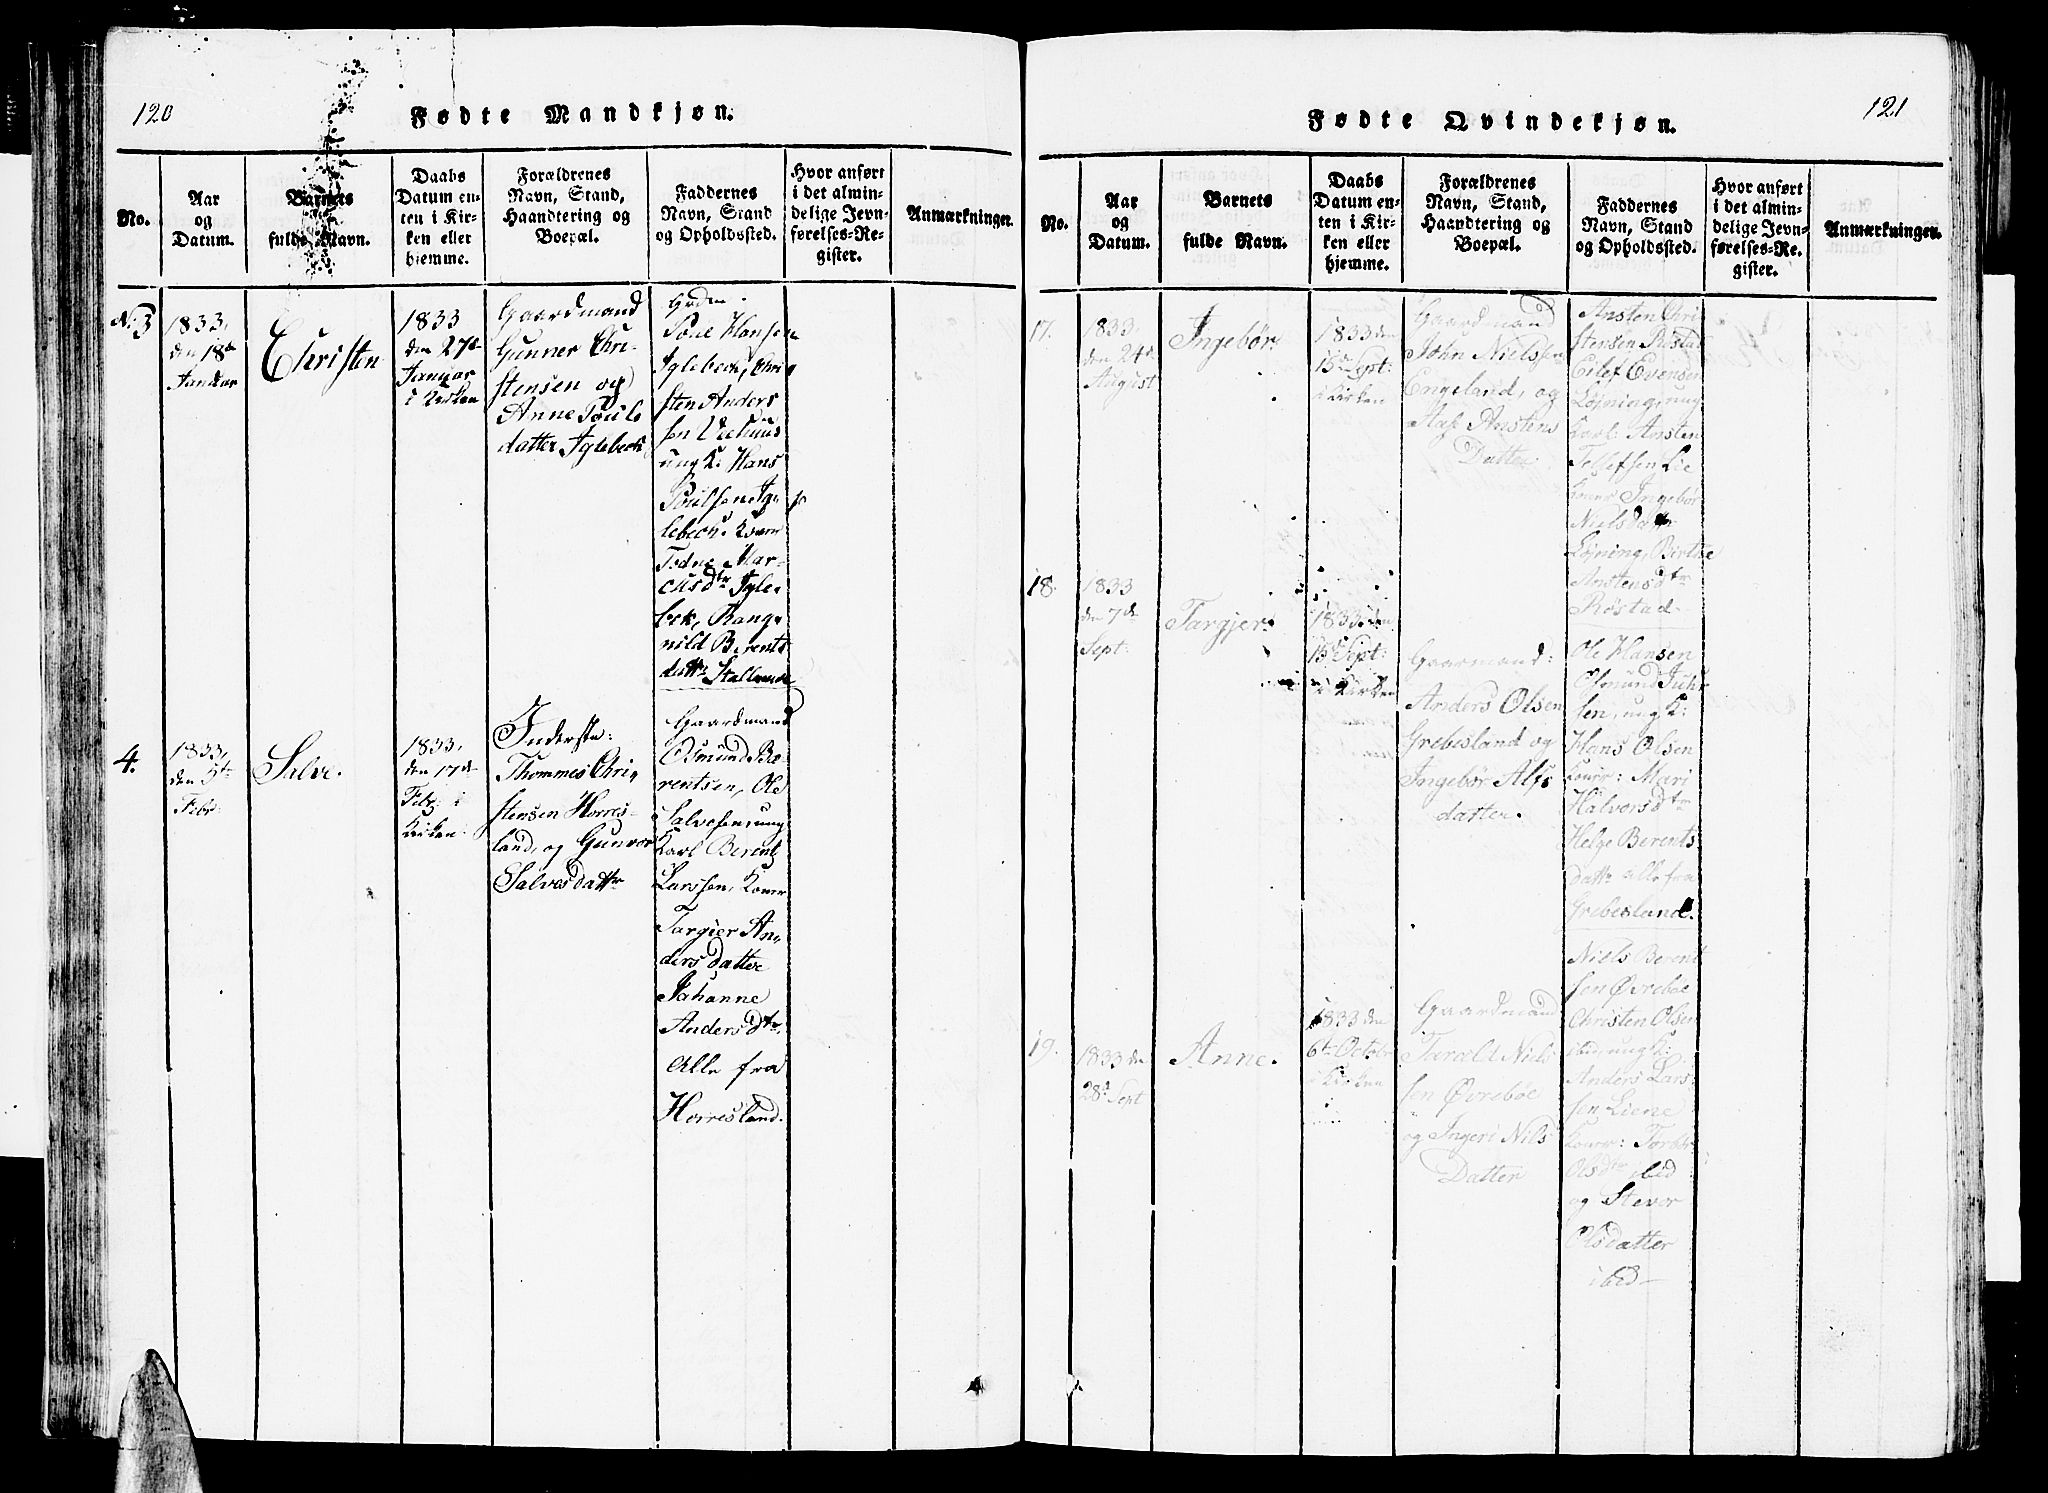 120
Fødte Mandkjøn.
No.
Aar
og
Datum.
Barnets
fulde Navn.
Daabs
Datum en-
ten i Kir-
ken eller
hjemme.
Forældrenes
Navn, Stand,
Haandtering og
Boepæl.
Faddernes
Navn, Stand
og Opholdssted.
Hvor anført
i det almin-
delige Jevn-
førelses-Re-
gister.
Anmærkninger.
No 3
1833.
den 18de
Januar
Christen
1833
den 27de
Januar
i Kirken
Gaardmand
Gunner Chri-
stensen og
Anne Pouls
datter Iglebech
Grdm.
Poul Hansen
Iglebech, Chri-
sten Anders
sen Veehuus
ungK: Hans
Poulsen Ig-
lebech. Koner
Todne Mar-
cusdtr Igle-
bek, Rang-
nild Berents
dattr Stallemo
4.
1833.
den 5te
Febr:
Salve.
1833.
den 17de
Febr: i
Kirken.
Inderste:
Thommes Chri-
stensen Horres-
land, og Gunvor
Salvesdattr
Gaardmand
Osmund Be-
rentsen, Ole
Salvesen, ung
Karl Berent
Larssen, Koner
Targier An-
dersdatter
Johanne
Andersdtr.
Alle fra
Horresland.
121
Fødte Qvindekjøn.
No.
Aar
og
Datum.
Barnets
fulde Navn.
Daabs
Datum en-
ten i Kir-
ken eller
hjemme.
Forældrenes
Navn, Stand,
Haandtering og
Boepæl.
Faddernes
Navn, Stand
og Opholdssted.
Hvor anført
i det almin-
delige Jevn-
førelses-Re-
gister.
Anmærkninger.
17.
1833.
den 24de
August
Ingebør.
1833 den
15de Sept:
i Kirken
Gaardmand
John Nielssen
Engeland, og
Aase Anstens
Datter.
Ansten Chri
stensen Røstad
Eilef Evensen
Løjning, ung
karl: Ansten
Tellefsen Lie
koner Ingebør
Nielsdatr
Løjning, Birthe
Anstensdtr
Røstad
18.
1833
den 7de
Sept:
Targjer.
1833 den
15de Sept:
i Kirken
Gaarmand:
Anders Olsen
Grebesland og
Ingebør Alfs
datter.
Ole Hansen
Osmund Guhr
sen, ungK:
Hans Olsen
koner: Mari
Halvorsdtr
Helge Berents
dattr alle fra
Grebesland.
19.
1833 den
28de Sept
Anne.
1833 den
6te Octobr
i Kirken
Gaardmand
Tarald Niels
sen Øvrebøe
og Ingeri Nils
Datter
Niels Berent
sen Øvrebøe
Christen Olsen
ibid, ungK:
Anders Lars-
sen Liene
koner: Torbør
Olsdtr ibid
og Stevor
Olsdatter
ibid